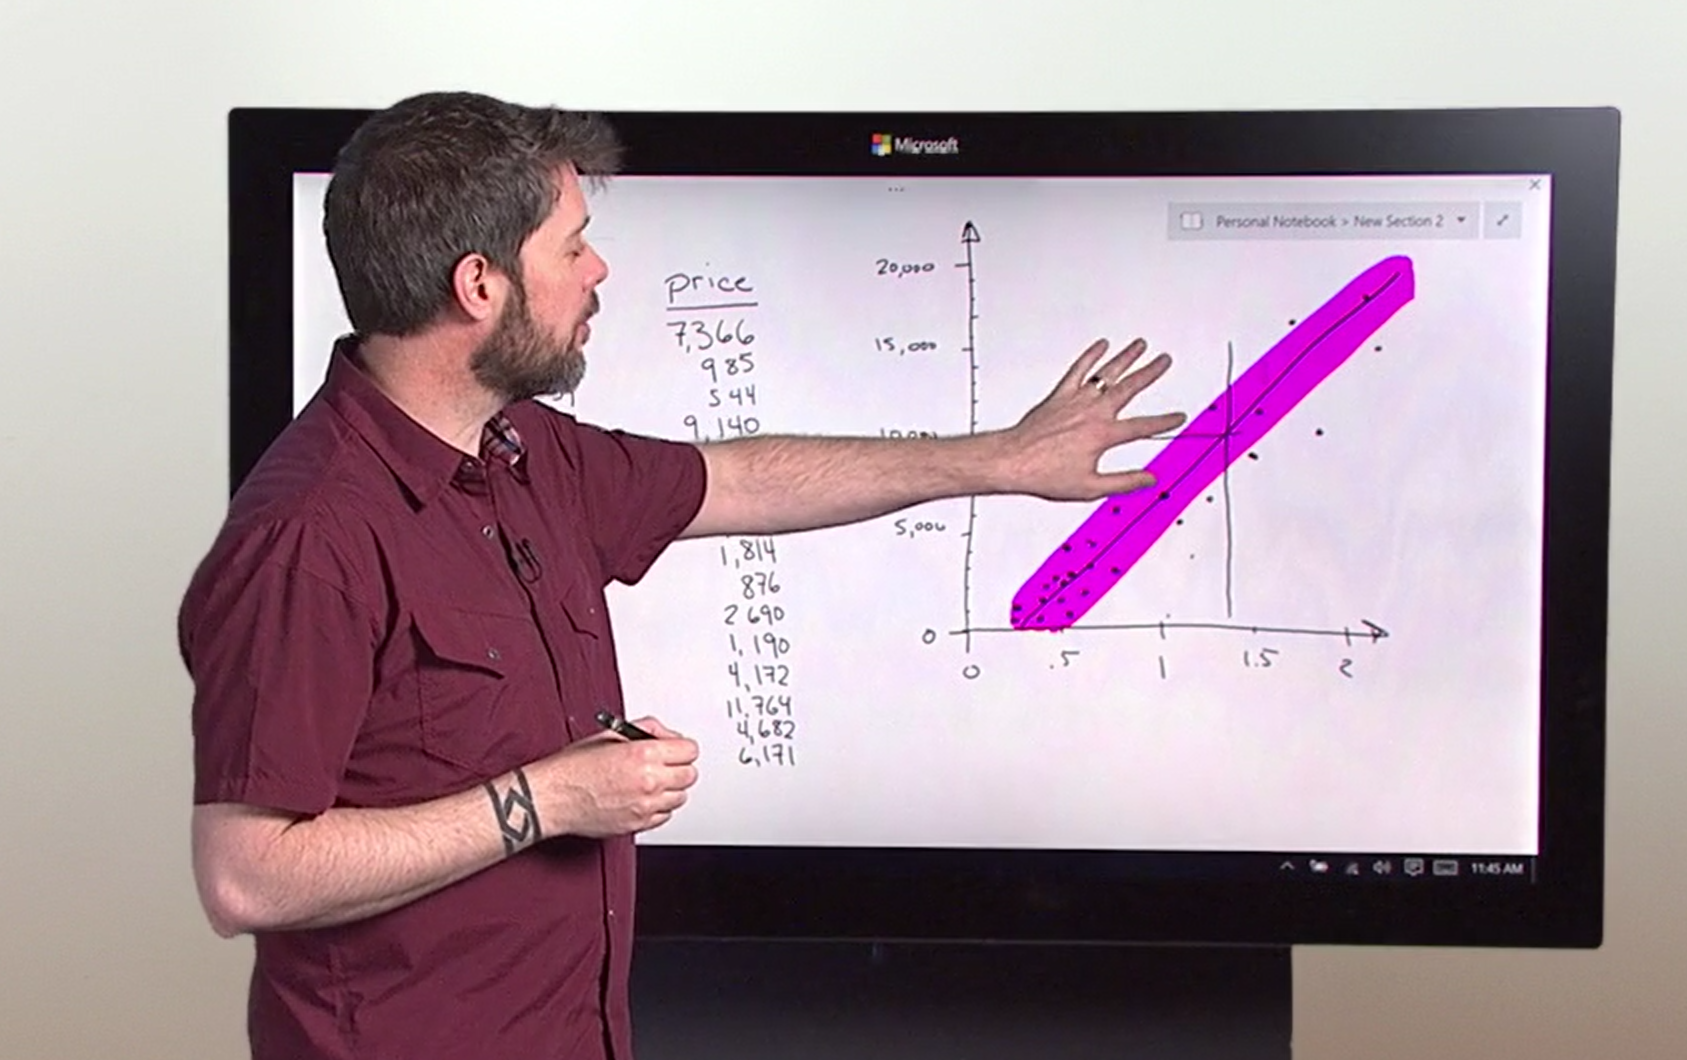 Microsoft
Personal Notebook > New Section 2
price
7,366
985
544
9,140
1,814
876
2 690
1,190
4,172
11,764
4,682
6,171
20,000
15,000
5,000
0
0 .5 1 1.5 2
11:45 AM